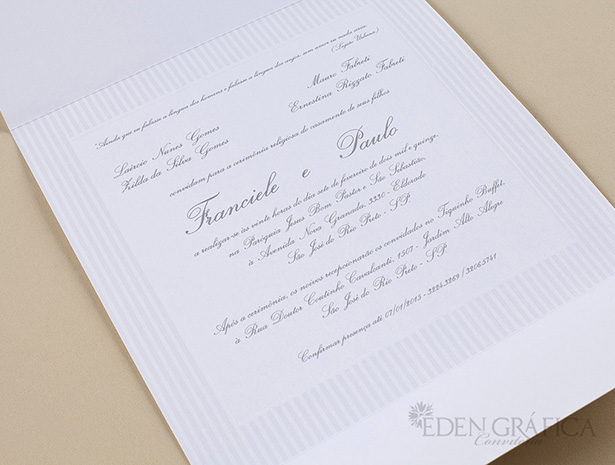 "Ainda que eu falasse a língua dos homens e falasse a língua dos anjos, sem amor eu nada seria
(Legião Urbana)
Laércio Nunes Gomes
Zilda da Silva Gomes
Mauro Fabuti
Ernestina Rizzato Fabuti
convidam para a cerimônia religiosa do casamento de seus filhos
Franciele e Paulo
a realizar-se às vinte horas do dia sete de fevereiro de dois mil e quinze,
na Paróquia Jesus Bom Pastor e São Sebastião,
à Avenida Nova Granada, 3330 - Eldorado
São José do Rio Preto - SP
Após a cerimônia, os noivos recepcionarão os convidados no Tiquinho Buffet,
à Rua Doutor Coutinho Cavalcanti, 1507 - Jardim Alto Alegre
São José do Rio Preto - SP
Confirmar presença até 07/01/2015 - 3224.3269 / 3206.3741
EDEN GRÁFICA
Convites